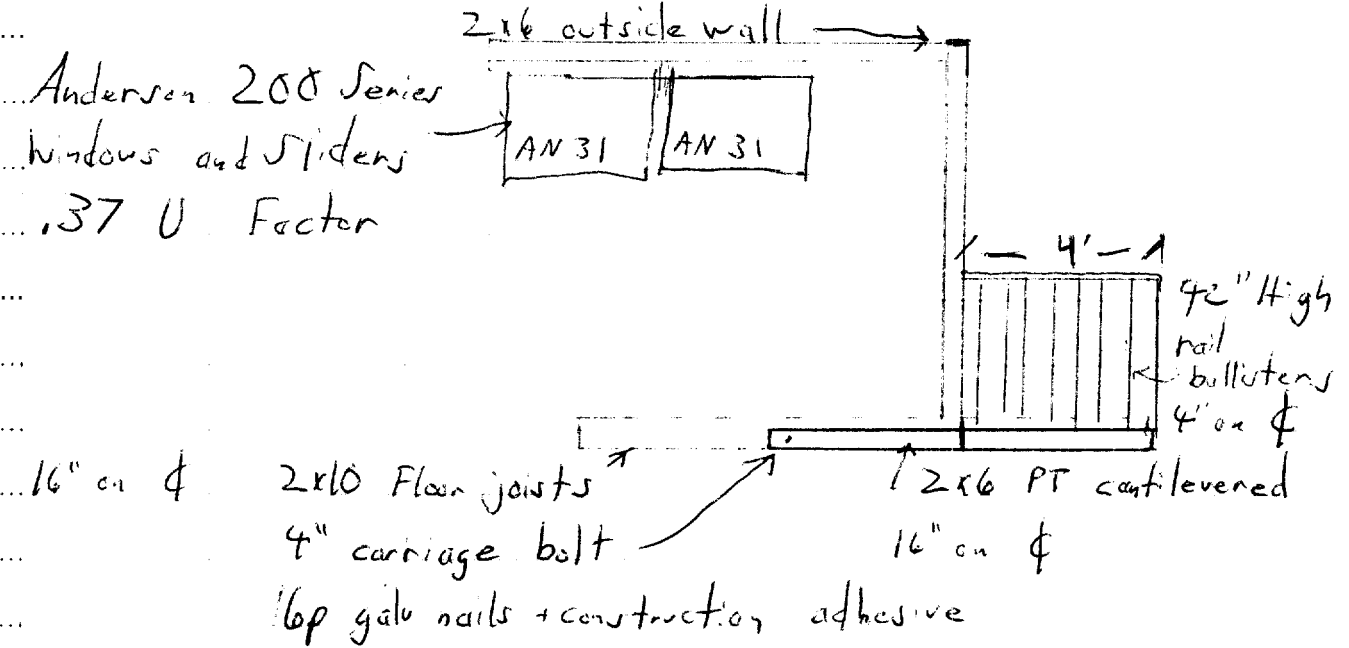 2x6 outside wall
Andersen 200 Series
Windows and Sliders
.37 U Factor
AN 31
AN 31
4'
42" High
rail
ballisters
4" on ℄
16" on ℄
2x10 Floor joists
2x6 PT cantilevered
16" on ℄
4" carriage bolt
16p galv nails + construction adhesive